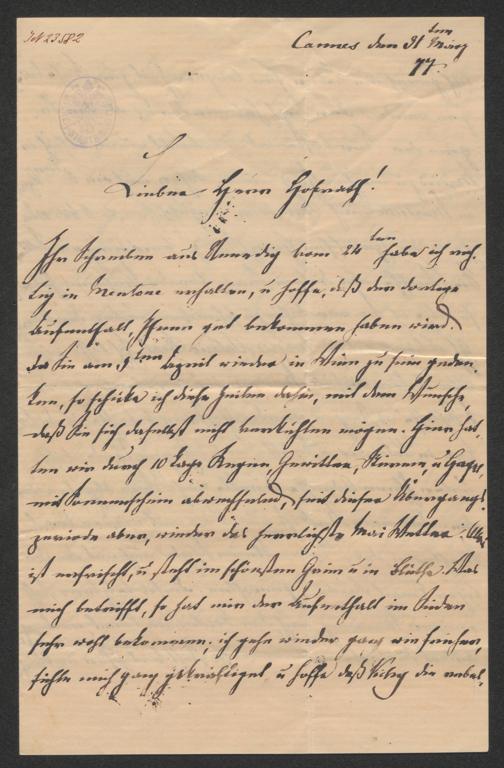 IN 23582
Cannes den 31ten März
77.
Lieber Herr Hofrath!
Ihr Schreiben aus Venedig vom 24ten habe ich rich-
tig in Mentone erhalten, u hoffe, daß der dortige
Aufenthalt, Ihnen gut bekommen haben wird.
Da Sie am 9ten April wieder in Wien zu sein geden-
ken, so schicke ich diese Zeilen dahin, mit dem Wunsche,
daß Sie sich daselbst nicht verkühlen mögen. Hier hat-
ten wir durch 10 Tage Regen, Gewitter, Stürme, u Hagel,
mit Sonnenschein abwechselnd, seit dieser Übergangs-
periode aber, wieder das herrlichste Mai Wetter. Alles
ist erfrischt, u steht im schönsten Grün u in Blüthe. Was
mich betrifft, so hat mir der Aufenthalt im Süden
sehr wohl bekommen, ich gehe wieder ganz wie früher,
fühle mich ganz gekräftiget u hoffe daß Vichy die